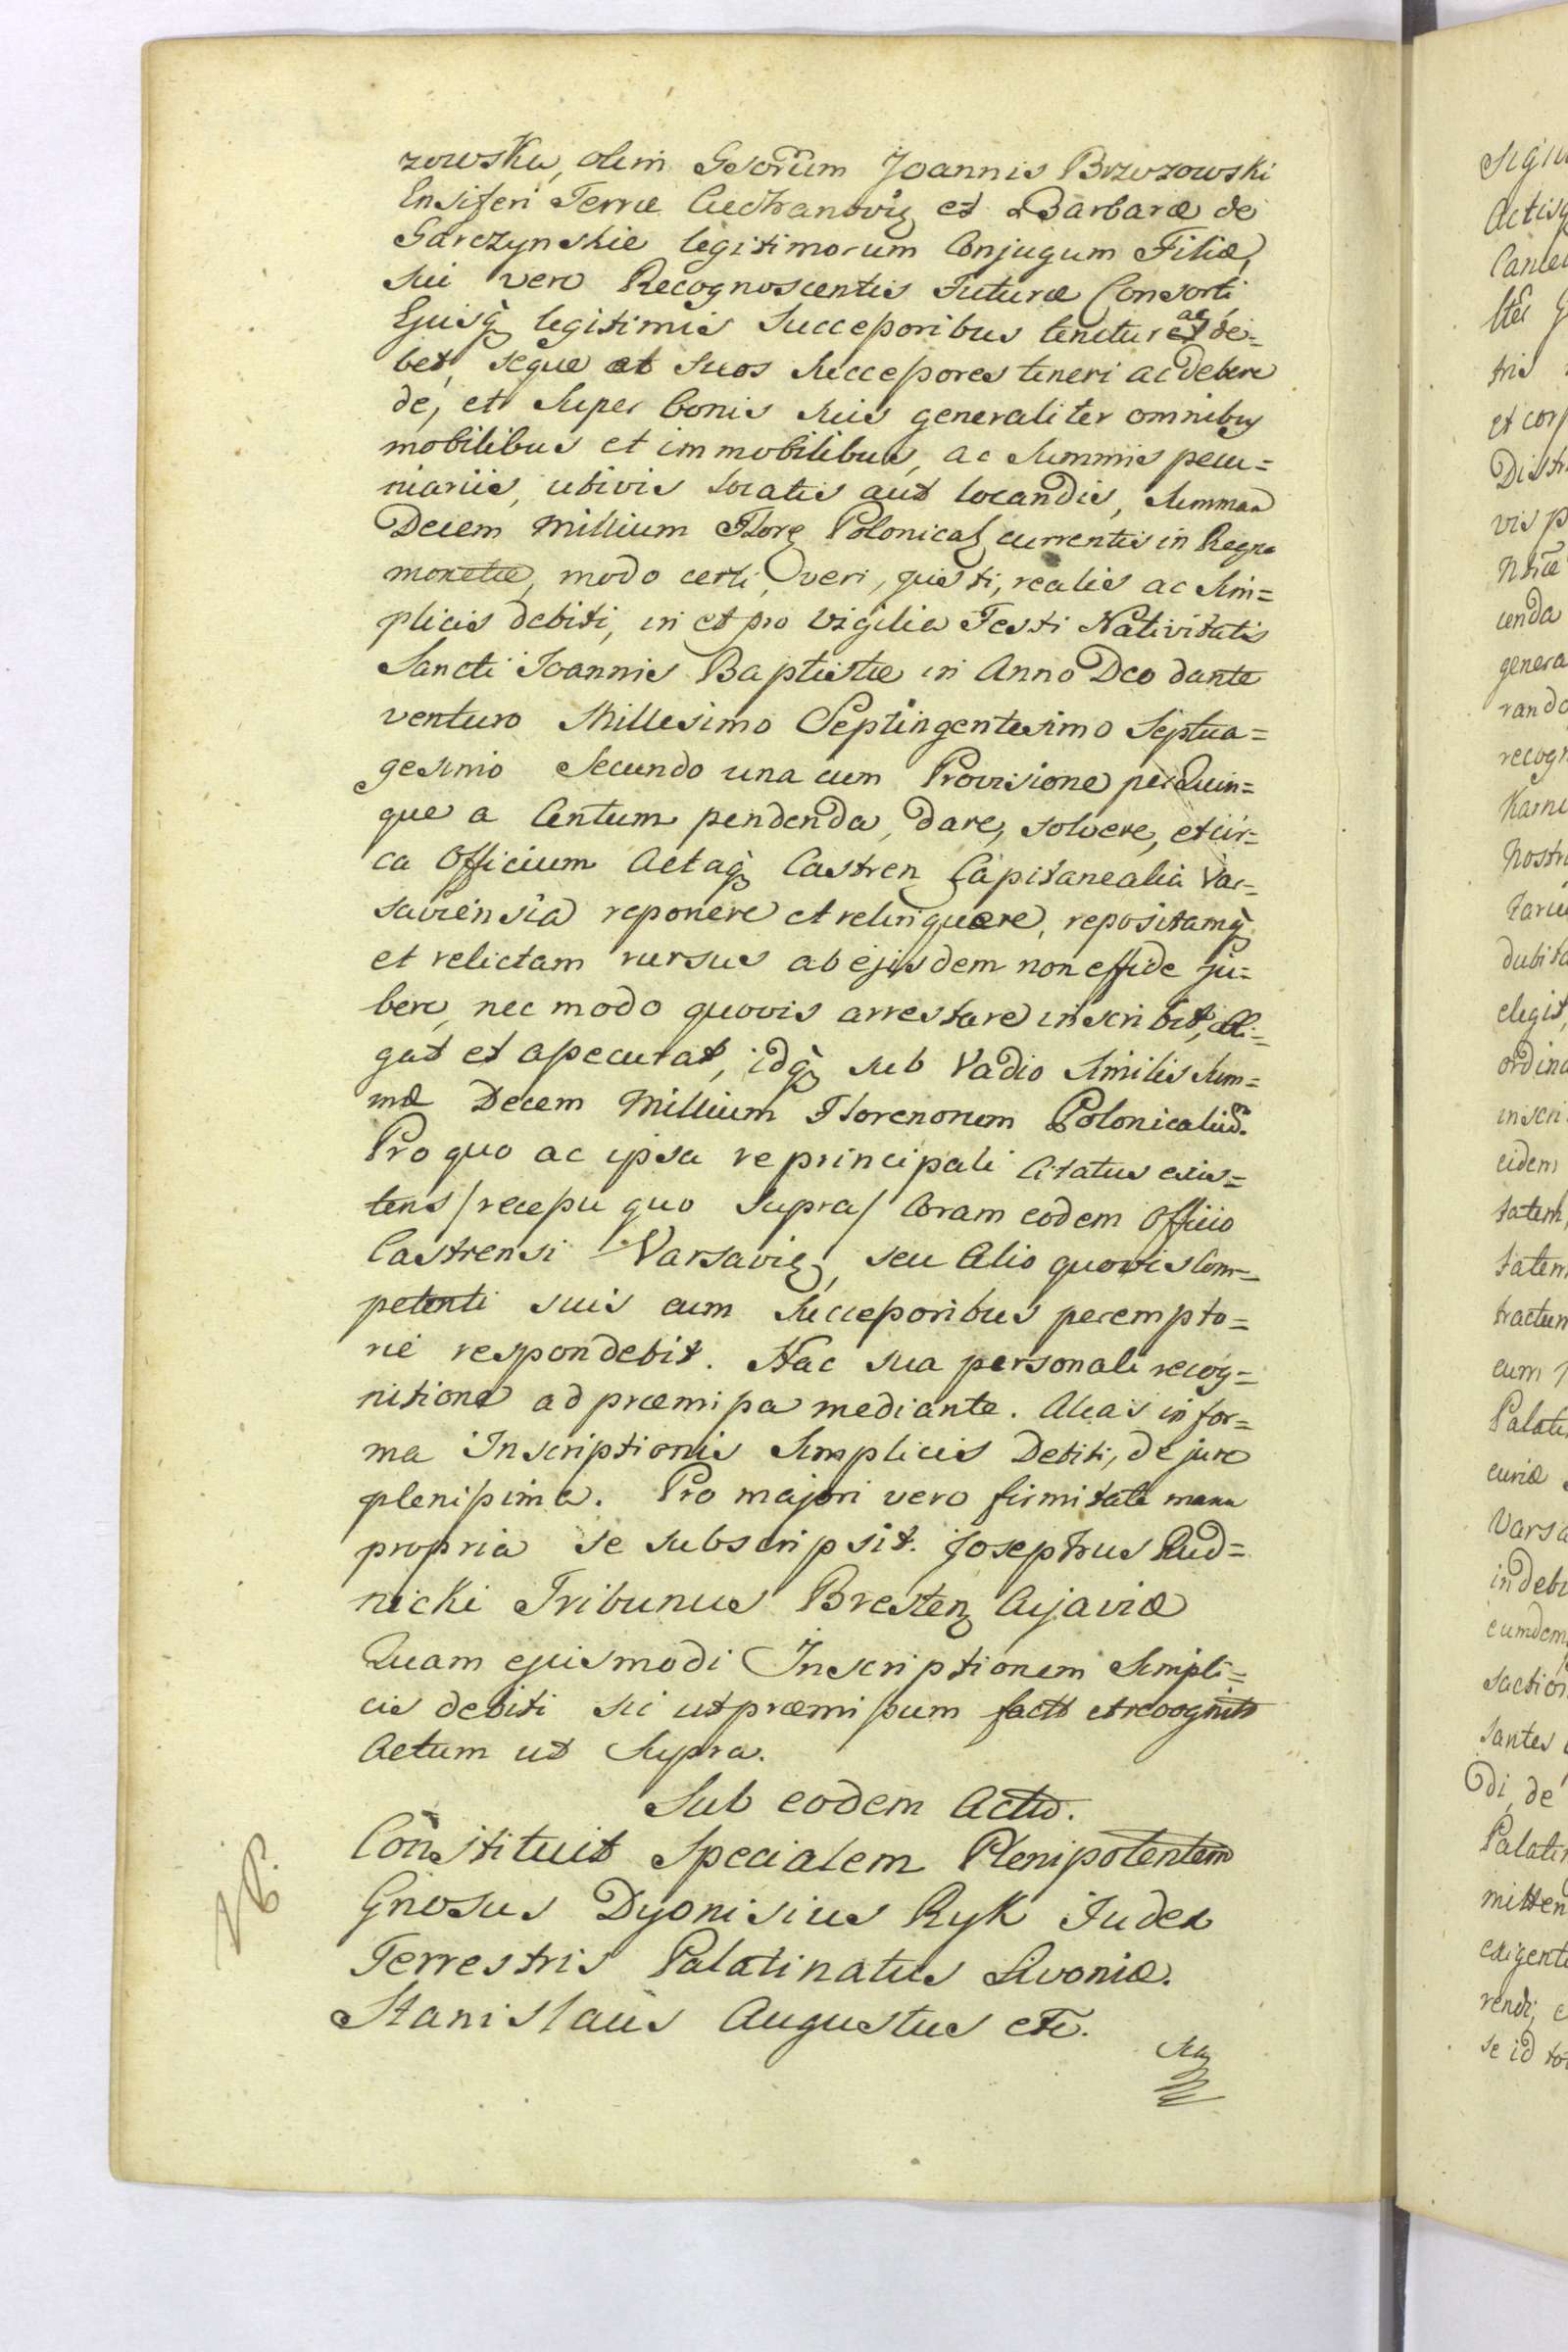 zowska, olim Gsorum Joannis Brzozowski
Ensiferi Terræ Ciechanoviȩ et Barbaræ de
Garczynskie legitimorum Conjugum Filiæ,
sui vero Recognoscentis futuræ Consorti
Ejusq̀ȝ legitimis Successoribus tenetur ac de=
bet, seque et suos Successores teneri ac debere
de, et super bonis suis generaliter omnibus
mobilibus et immobilibus, ac summis pecu=
niariis, ubivis locatis aut locandis, summam
Decem Millium Florȩ Polonicalȩ currentis in Regno
monetæ, modo certi, veri, justi, realis ac Sim=
plicis debiti, in et pro Vigilia Festi Nativitatis
Sancti Joannis Baptistæ in Anno Deo dante
venturo Millesimo Septingentesimo Septua=
gesimo Secundo una cum Provisione per Quin=
que a Centum pendenda, dare, solvere, et cir=
ca Officium Actaq̀ȝ Castrenȝ Capitanealia Var=
saviensia reponere et relinquere, repositamq̀ȝ
et relictam rursus ab ejusdem non effide ju=
bere, nec modo quovis arrestare inscribit, obli=
gat et assecurat, idq̀ȝ sub Vadio similis sum=
mæ Decem Millium Florenorum Polonicaliū.
Pro quo ac ipsa re principali Citatus exis=
tens /recessu quo supra/ Coram eodem Officio
Castrensi Varsaviȩ, seu alio quovis Com=
petenti suis cum Successoribus perempto=
rie respondebit. Hac sua personali recog=
nitione ad præmissa mediante. Alias in for=
ma Inscriptionis Simplicis Debiti, de jure
plenissima. Pro majori vero firmitate manu
propria se subscripsit. Josephus Rud=
nicki Tribunus Brestenȝ Cujaviæ
Quam ejusmodi Inscriptionem Simpli=
cis debiti sic ut præmissum factt et recognitt
Actum ut Supra.
Sub eodem Actu.
Constituit Specialem Plenipotentem
Gnosus Dyonisius Ryk Judex
Terrestris Palatinatus Livoniæ.
Stanislaus Augustus etc.
Sig
Actisq
Cancel
tris
et corp
Distr
vis p
cenda
genera
rando
recogn
Nostr
dubita
elegit
ordina
inscri
eidem
tatem,
tatem
tractum
cum
Palati
curiæ
Varsa
indebi
eumdem
saction
santes
di, de
Palati
mitten
exigent
rendi, e
se id to